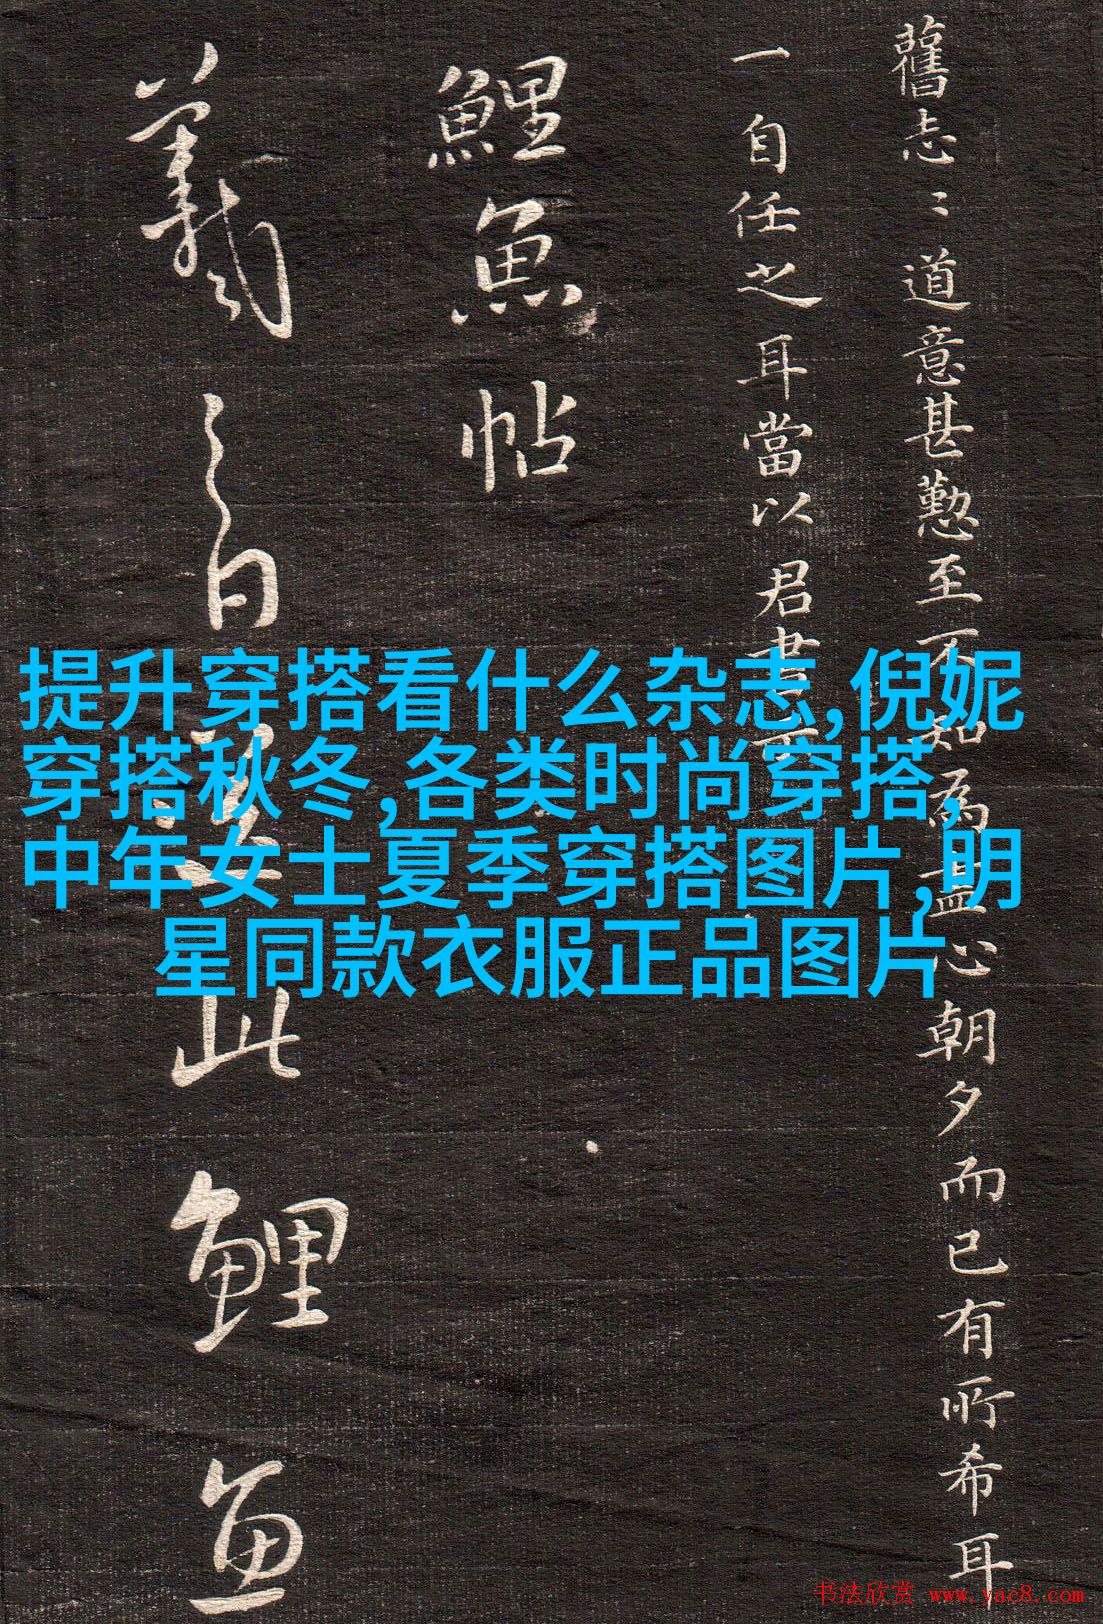 舊志〻道意甚懃至不知為盡心朝夕而已有所希耳
一自任之耳當以君書示
鯉魚帖
羲之白送此鯉魚
提升穿搭看什么杂志,倪妮
穿搭秋冬,各类时尚穿搭,
中年女士夏季穿搭图片,明
星同款衣服正品图片
书法欣赏 www.yac8.com